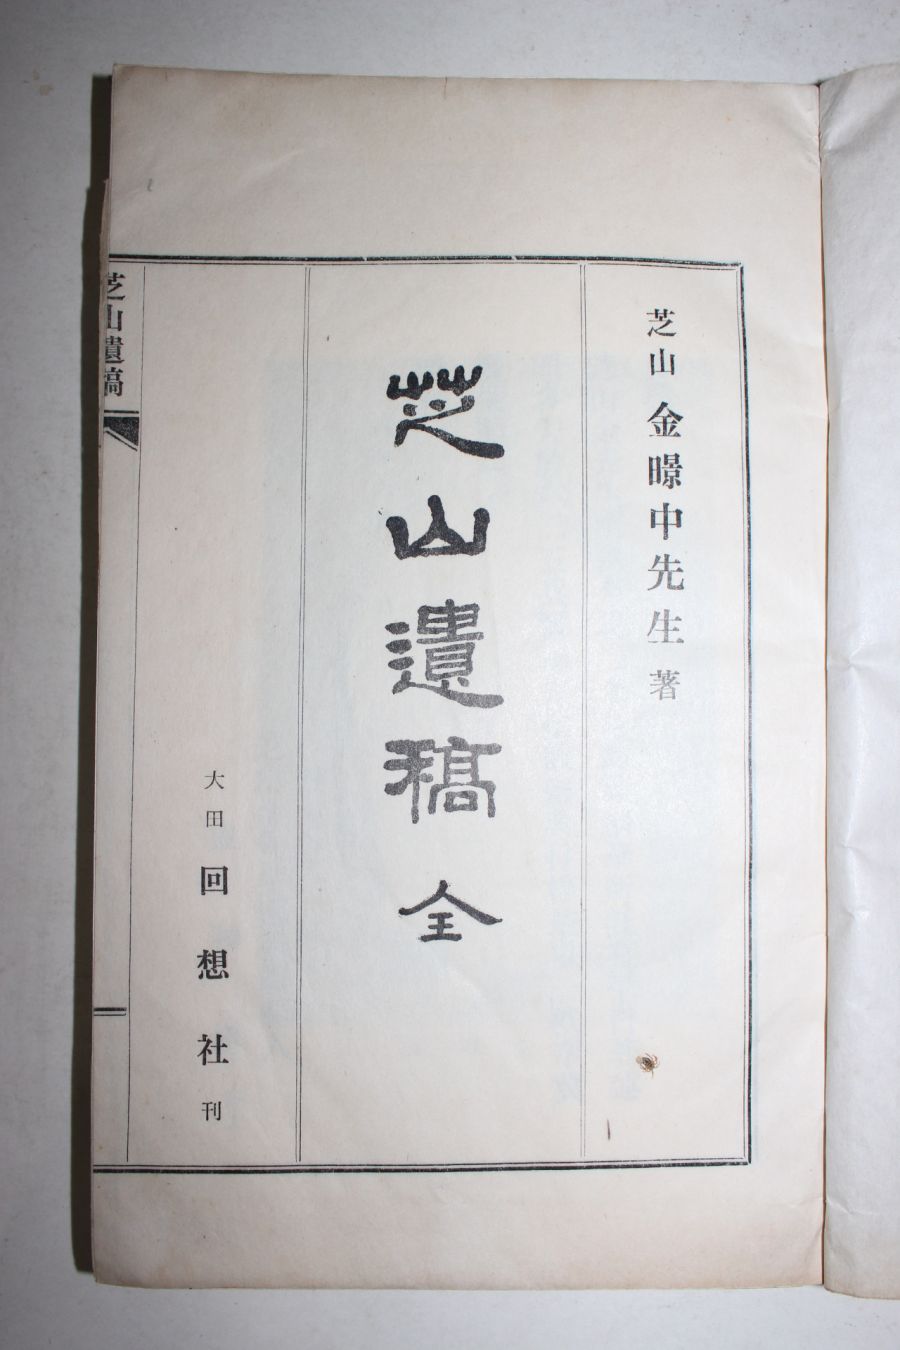 芝山 金暻中先生 著
芝山遺稿 全
大田 回想社 刊
芝山遺稿